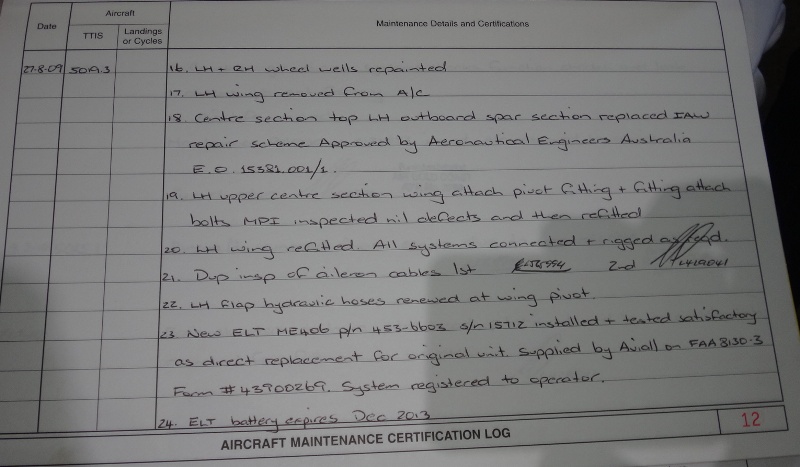 Date
Aircraft
TTIS
Landings
or Cycles
Maintenance Details and Certifications
27-8-09 5019.3
16. LH + RH wheel wells repainted
17. LH wing removed from A/C
18. Centre section top LH outboard spar section replaced IAW
repair scheme Approved by Aeronautical Engineers Australia
E.O. 15381.001/1.
19. LH upper centre section wing attach pivot fitting + fitting attach
bolts MPI inspected nil defects and then refitted
20. LH wing refitted. All systems connected + rigged
21. Dup insp of aileron cables 1st 2nd
22. LH flap hydravic hoses renewed at wing pivot.
23 New ELT ME406 p/n 453-6603 s/n 15712 installed + tested satisfactory
as direct replacement for original unit. Supplied by Aviall on FAA 8130-3
Form # 43900269. System registered to operator.
24. ELT battery expires Dec 2013
AIRCRAFT MAINTENANCE CERTIFICATION LOG
12